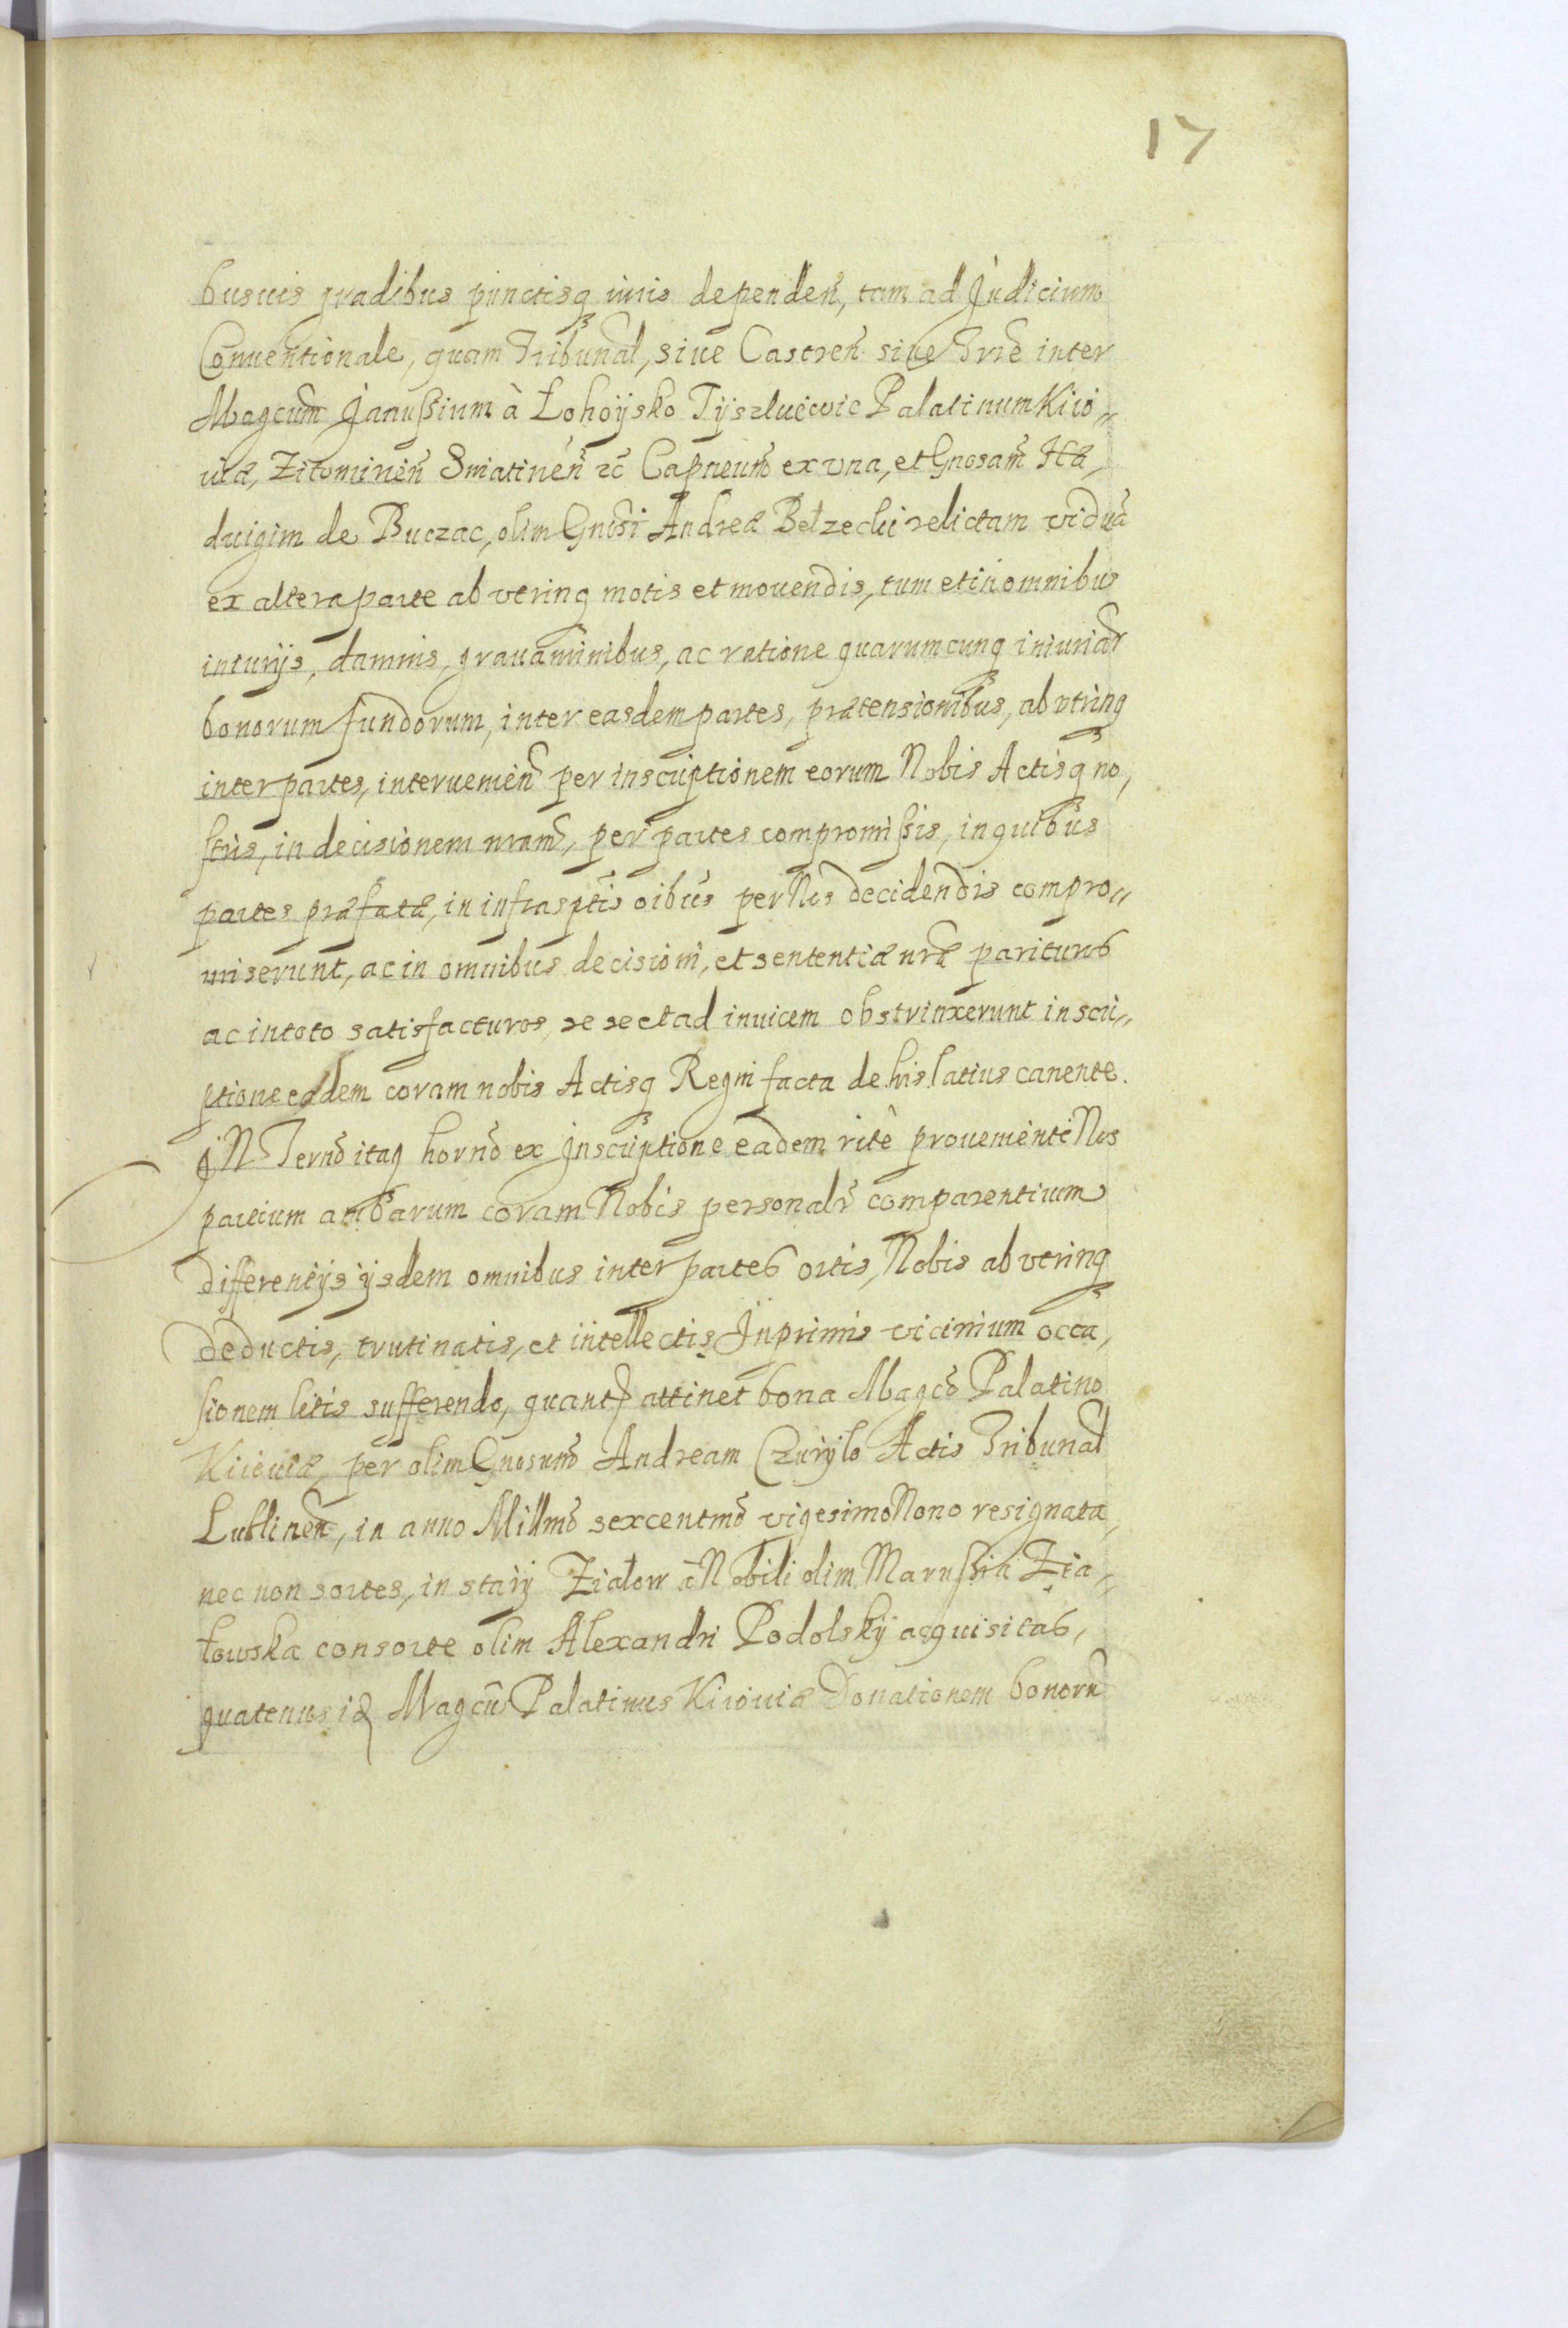 17
busuis gradibus punctisq iuris dependeñ, tam ad Judicium
Conuentionale, quam Tribunal, siue Castreñ siue Trrẽ inter
Magcum Janussium à Łohoÿsko Tÿszkiewic Palatinum Kiio„
uiæ, Zitomirieñ Sniatineñ zc̃ Capneum ex vna, et Gnosam̃ Hæ,
duigim de Buczac, olim Gnosi Andreæ Bełzecki relictam viduã
ex altera parte ab vtrinq motis et mouendis, tum et in omnibus
iniurijs, damnis, grauaminibus, ac ratione quarumcunq iniuriar̃
bonorum fundorum, inter easdem partes, prætensionibus, ab vtrinq
inter partes, interuenieñ per inscriptionem eorum Nobis Actisq no,
stris, in decisionem nram̃, per partes compromissis, in quibus
partes præfatæ, in infrasptis oibus per Nos decidendis compro„
miserunt, ac in omnibus decisioni, et sententiæ nræ̃ parituros
ac in toto satisfacturos, se se et ad inuicem obstrinxerunt inscri„
ptione eadem coram nobis Actisq Regni facta de his latius canente.
IN Termõ itaq hornõ ex Inscriptione eadem ritè proueniente Nos
partium ambarum coram Nobis personalr̃ comparentium
differentijs ijsdem omnibus inter partes ortis, Nobis ab vtrinq
deductis, trutinatis, et intellectis Inprimis vicinium occa,
sionem litis sufferendo, quant attinet bona Magcõ Palatino
Kiiouiæ, per olim Gnosum Andream Czuryło Actis Tribunal
Lublineñ, in anno Millmõ sexcentmõ vigesimo Nono resignata,
nec non sortes, in starÿ Ziałow à Nobili olim Marussia Zia„
łowska consorte olim Alexandri Podolskÿ acquisitas,
quatenus id Magcus Palatinus Kiiouiæ Donationem bonorũ